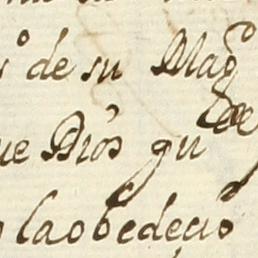 de su Mag^d
que Dios gu^de
la obedecio